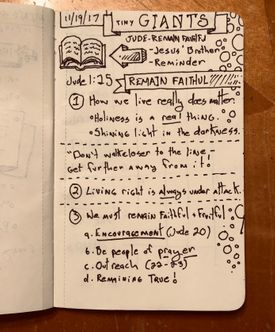 11/19/17
TINY GIANTS
JUDE-REMAIN FAITHFUL
- Jesus' Brother
- Reminder
Jude 1:25
REMAIN FAITHFUL!!!!!!
1 How we live really does matter.
• Holiness is a real thing.
• Shining light in the darkness.
"Don't walk closer to the line!
Get further away from it!"
2 Living right is always under attack.
3 We must remain Faithful + Fruitful
a. Encouragement (Jude 20)
b. Be people of prayer
c. Outreach (22-23)
d. Remaining True!